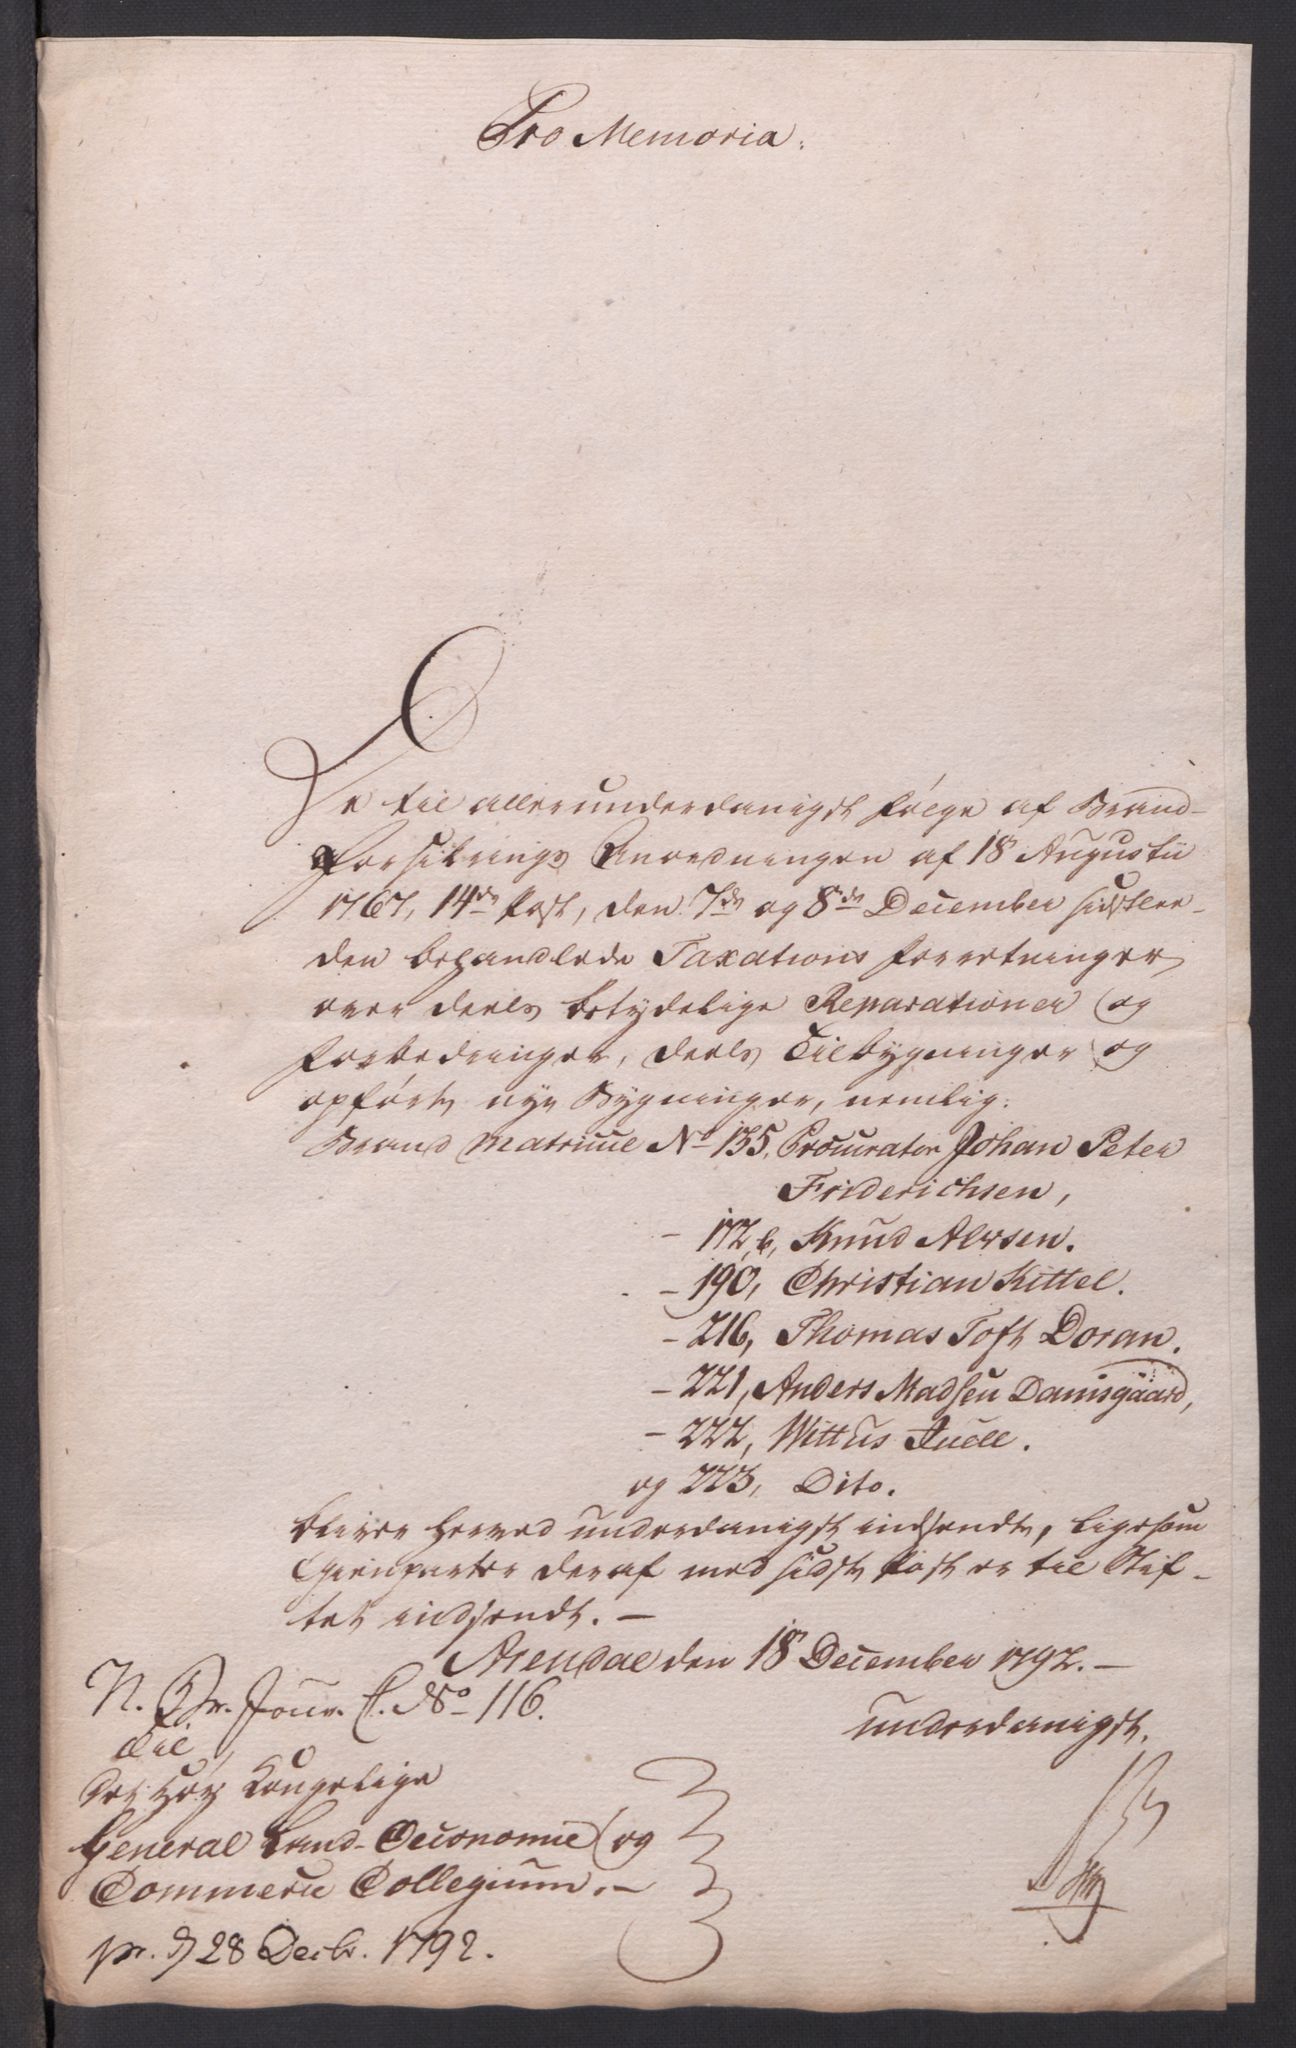 Pro Memoria.
De til allerunderdanigst følge af Brand-
Forsikrings Anordningen af 18 Augustii
1767, 14de Post, den 7de og 8de December sidstlee-
den behandlede Taxations forretninger
over deels betydelige Reparationer og
forbedringer, deels Tilbygninger og
opførte nye Bygninger, nemlig:
Brand Matricul No 155. Procurator Johan Peter
Friderichsen,
- 172, b, Knud Alvsen.
- 190, Christian Kittel.
- 216, Thomas Toft Doran.
- 221, Anders Madsen Damsgaard,
- 222, Wittus Juell.
og 223, Dito.
bliver herved underdanigst indsendte, ligesom
Gienparter deraf med sidste Post er til Stif-
tet indsendt. —
Arendal den 18 December 1792. —
N. Br. Jour. C. No 116.
underdanigst.
Til
Det Høy Kongelige
General Land-Oeconomie og
Commerce Collegium. —
pr. d 28 Decbr. 1792.